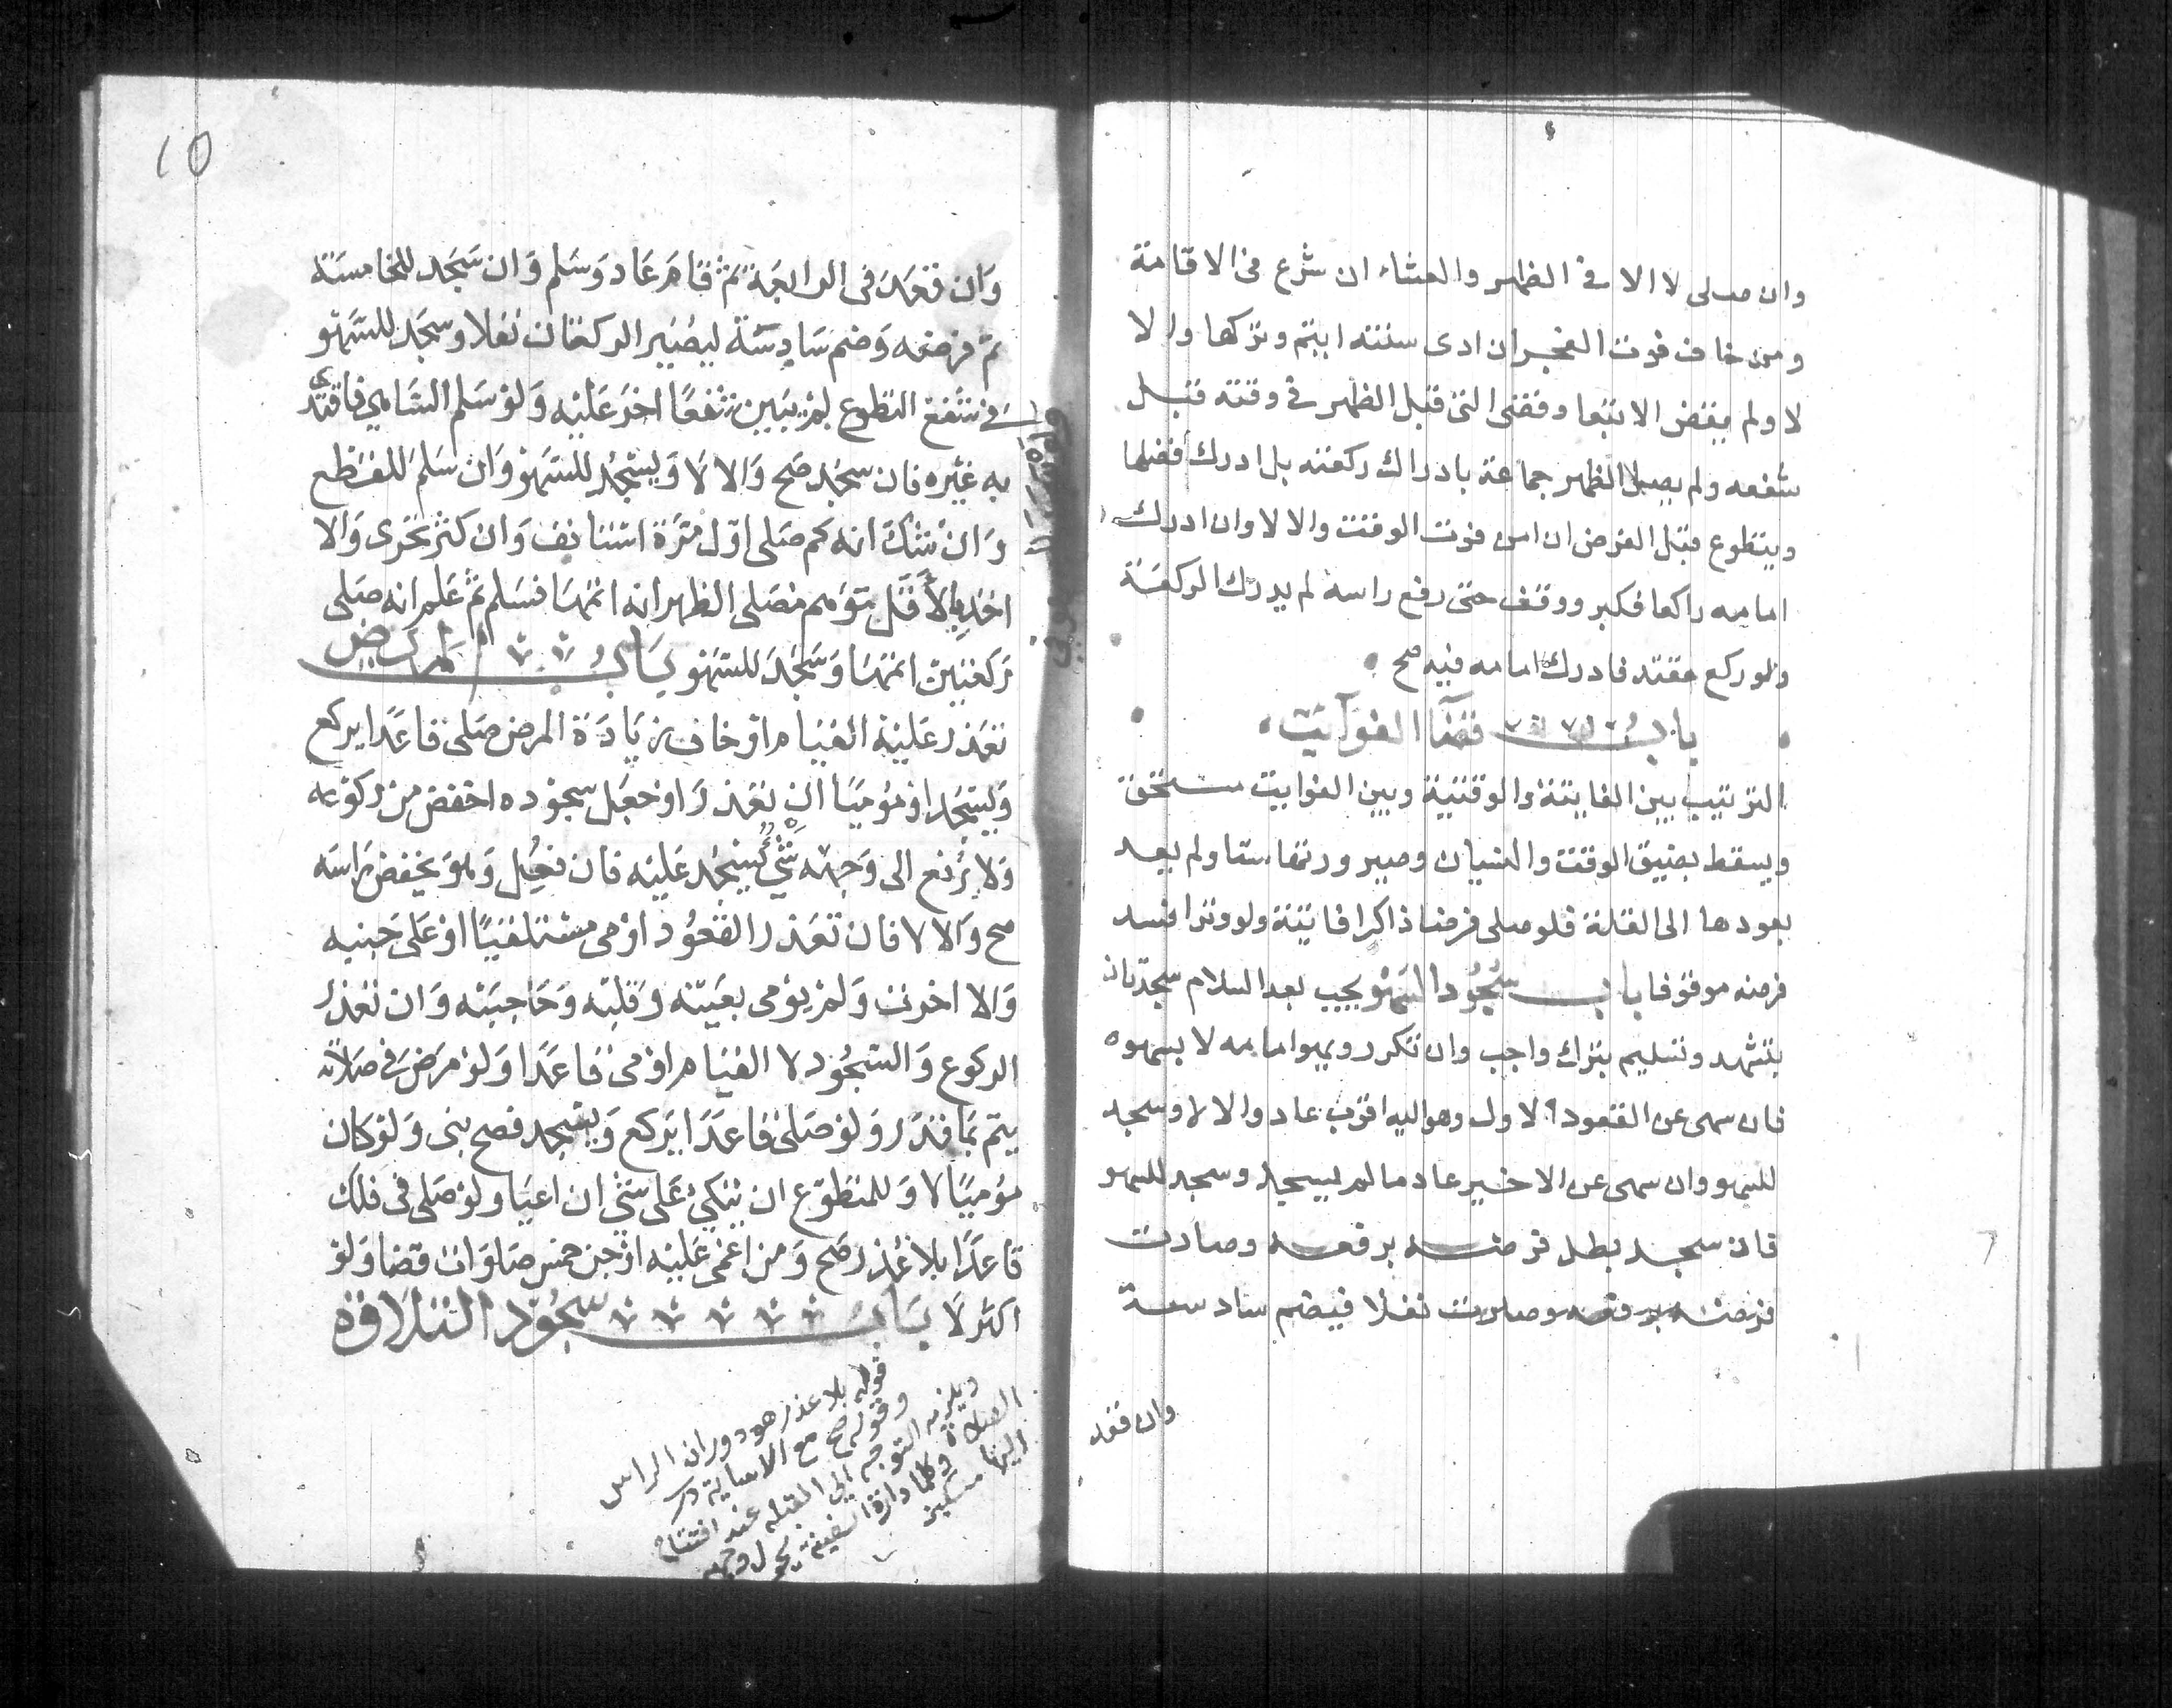 وان صلى لا الا في الظهر والعشاء ان شرع في الاقامة
ومن خاف فوت الفجر ان ادى سنته ايتم وتركها والا
لا ولم يقض الا تبعا وقضى التي قبل الظهر في وقته قبل
شفعه ولم يصل الظهر جماعة بادراك ركعته بل ادرك فضلها
ويتطوع قبل الفرض ان امن فوت الوقت والا لا وان ادرك
امامه راكعا فكبر ووقف حتى رفع راسه لم يدرك الركعة
ولو ركع مقتد فادرك امامه فيه صح
باب قضآ الفوآيت
الترتيب بين الفايتة والوقتية وبين الفوايت مستحق
ويسقط بضيق الوقت والنسيان وصيرورتها ستا ولم يعد
بعودها الى القلة فلو صلى فرضا ذاكرا فايتة ولو وترا فسد
فرضه موقوفا باب سُجُود السَهْو يجب بعد السلام سجدتان
بتشهد وتسليم بترك واجب وان تكرر وبسهو امامه لا بسهوه
فان سهى عن القعود الاول وهو اليه اقرب عاد والا لا وسجد
للسهو وان سهى عن الاخير عاد مالم يسجد وسجد للسهو
فان سجد بطل فرضه برفعه وصارت
فرضه برفعه وصارت نفلا فيضم سادسة
وان قعد
10
وَان قعَدَ في الرابعَة ثمّ قامَ عَاد وَسَلم وَان سَجَد للخامسَة
تمّ فرضه وَضم سَادِسَة ليصير الركعتان نفلا وسجَد للسَّهو
في شفع التطوع لم يبين شفعًا اخرَ عَليْه وَلو سَلم السَّاهي فاقتدى
به غيْره فان سجَد صَح وَالا لا وَيسْجُد للسَّهو وَان سَلم للقطع
وَان شكّ انه كم صَلى اوّل مَرّة استانف وَان كثر تحرى وَالا
اخذ بالأقَل توَهم مصَلي الظهر انه اتمهَا فسَلم ثمّ عَلم انه صَلى
رَكعتين اتمّهَا وَسَجَدَ للسَّهو بَابُ المريض
تعَذر عَليْه القيَام اوْ خاف زيَادَة المرض صَلى قاعَدًا يركع
وَيسْجُد اوْ مُوميًا ان تعَذرَا وَجعَل سجوْده اخفض من ركوْعه
وَلا يُرْفع الى وَجهه شئ يسْجُد عَليْه فان فعِل وَهوَ يخفض رَاسَه
صح وَالا لا فان تعَذر القعُوْد اوْمى مسْتلقيًا اوْ عَلى جَنبه
وَالا اخرت وَلمْ يوْمى بعَينه وَقلبه وَحَاجبَه وَان تعَذر
الركوع وَالسّجُود لا القيَام اوْمى قاعَدًا وَلوْ مرَض في صَلاته
يتم بمَا قدَر وَلوْ صَلى قاعَدًا يَركع وَيسْجد فصح بنى وَلوْ كان
مُوميًا لا وَللمتطوّع ان يتكئ عَلى شئ ان اعيَا ولوْ صَلى في فلك
قاعَدًا بلا عُذر صَح وَمن اغمى عَليْه اوْ جن خمْس صَلوَات قضا وَلوْ
اكثر لا بَابُ سجُوْد التلاوَة
قوله بلا عذر هو دوران الراس
وقوله صح مع الاساية
ويلزمه التوجه الى القبله عند افتتاح
الصلاة وكلما دارة السفينة يحول وجهه
اليها مسكين